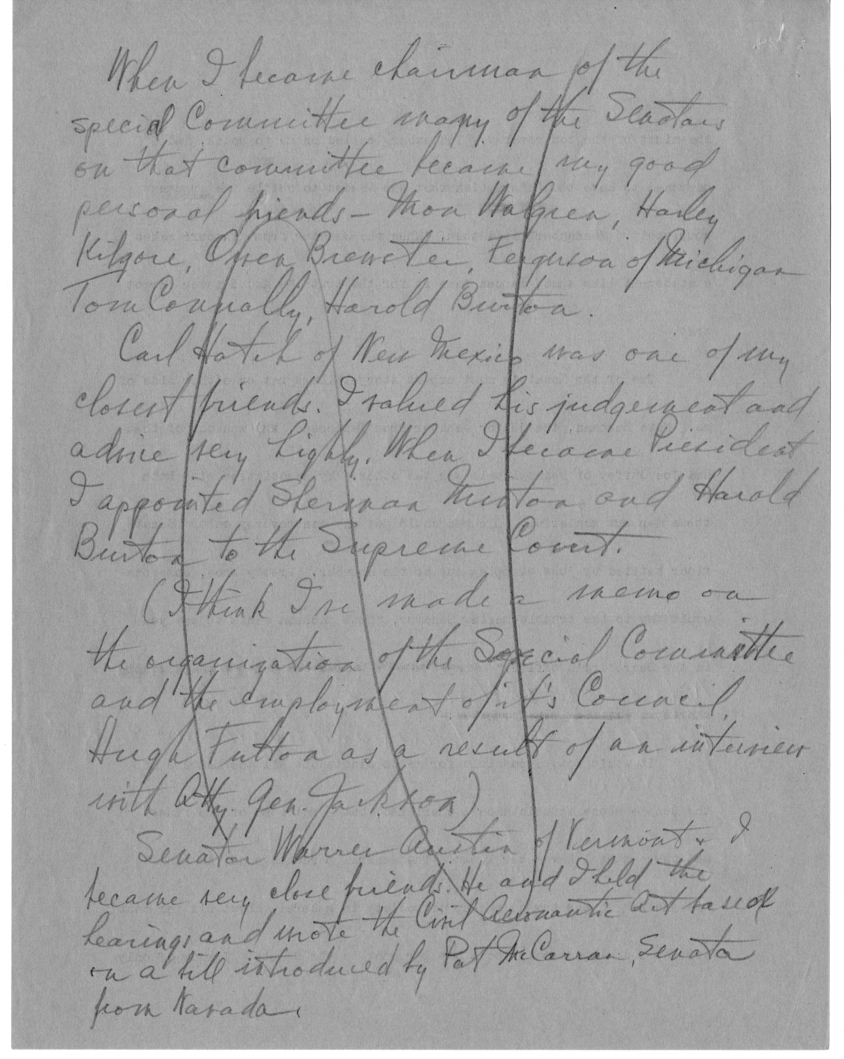 When I became chairman of the
special Committee many of the Senators
on that committee became my good
personal friends - Mon Walgren, Harley
Kilgore, Owen Brewster, Ferguson of Michigan
Tom Connally, Harold Burton.
Carl Hatch of New Mexico was one of my
closest friends. I valued his judgement and
advice very highly. When I became President
I appointed Sherman Minton and Harold
Burton to the Supreme Court.
(I think I've made a memo on
the organization of the Special Committee
and the employment of it's Council,
Hugh Fulton as a result of an interview
with Atty. Gen. Jackson)
Senator Warren Austin of Vermont & I
became very close friends. He and I held the
hearings and wrote the Civil Aeronautic Act based
on a bill introduced by Pat McCarran, Senator
from Navada.